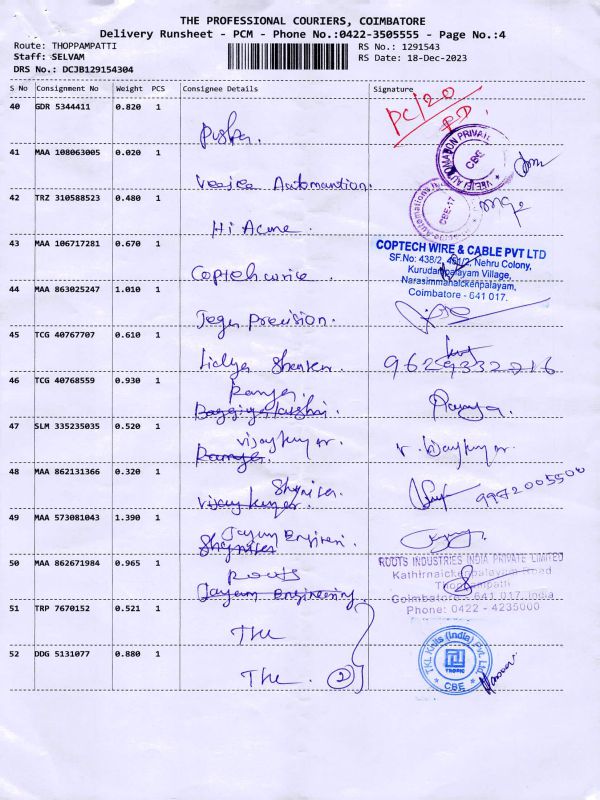 THE PROFESSIONAL COURIERS, COIMBATORE
Delivery Runsheet - PCM - Phone No.:0422-3505555 - Page No.:4
Route: THOPPAMPATTI
RS No.: 1291543
Staff: SELVAM
RS Date: 18-Dec-2023
DRS No.: DCJB129154304
S No Consignment No Weight PCS Consignee Details Signature
40 GDR 5344411 0.820 1
PC/20
41 MAA 108063005 0.020 1
Veejee Automantion.
42 TRZ 310588523 0.480 1
CBE-17
Hi Acme.
43 MAA 106717281 0.670 1
Coptech wire
COPTECH WIRE & CABLE PVT LTD
SF.No: 438/2, 431/2, Nehru Colony,
Kurudampalayam Village,
Narasimmanaickenpalayam,
Coimbatore - 641 017.
44 MAA 863025247 1.010 1
Precision.
45 TCG 40767707 0.610 1
9629332216
46 TCG 40768559 0.930 1
Ramya.
Ramya.
47 SLM 335235035 0.520 1
vijaykumar.
v. Vijaykumar
48 MAA 862131366 0.320 1
vijay kumar.
49 MAA 573081043 1.390 1
50 MAA 862671984 0.965 1
roots
Jayam Engineering
ROOTS INDUSTRIES INDIA PRIVATE LIMITED
Kathirnaickenpalayam Road
Thoppampatti
Coimbatore - 641 017, India
Phone: 0422 - 4235000
51 TRP 7670152 0.521 1
The
52 DDG 5131077 0.880 1
The. 2
TKL Knits (India) Pvt. Ltd
TROPIC
CBE